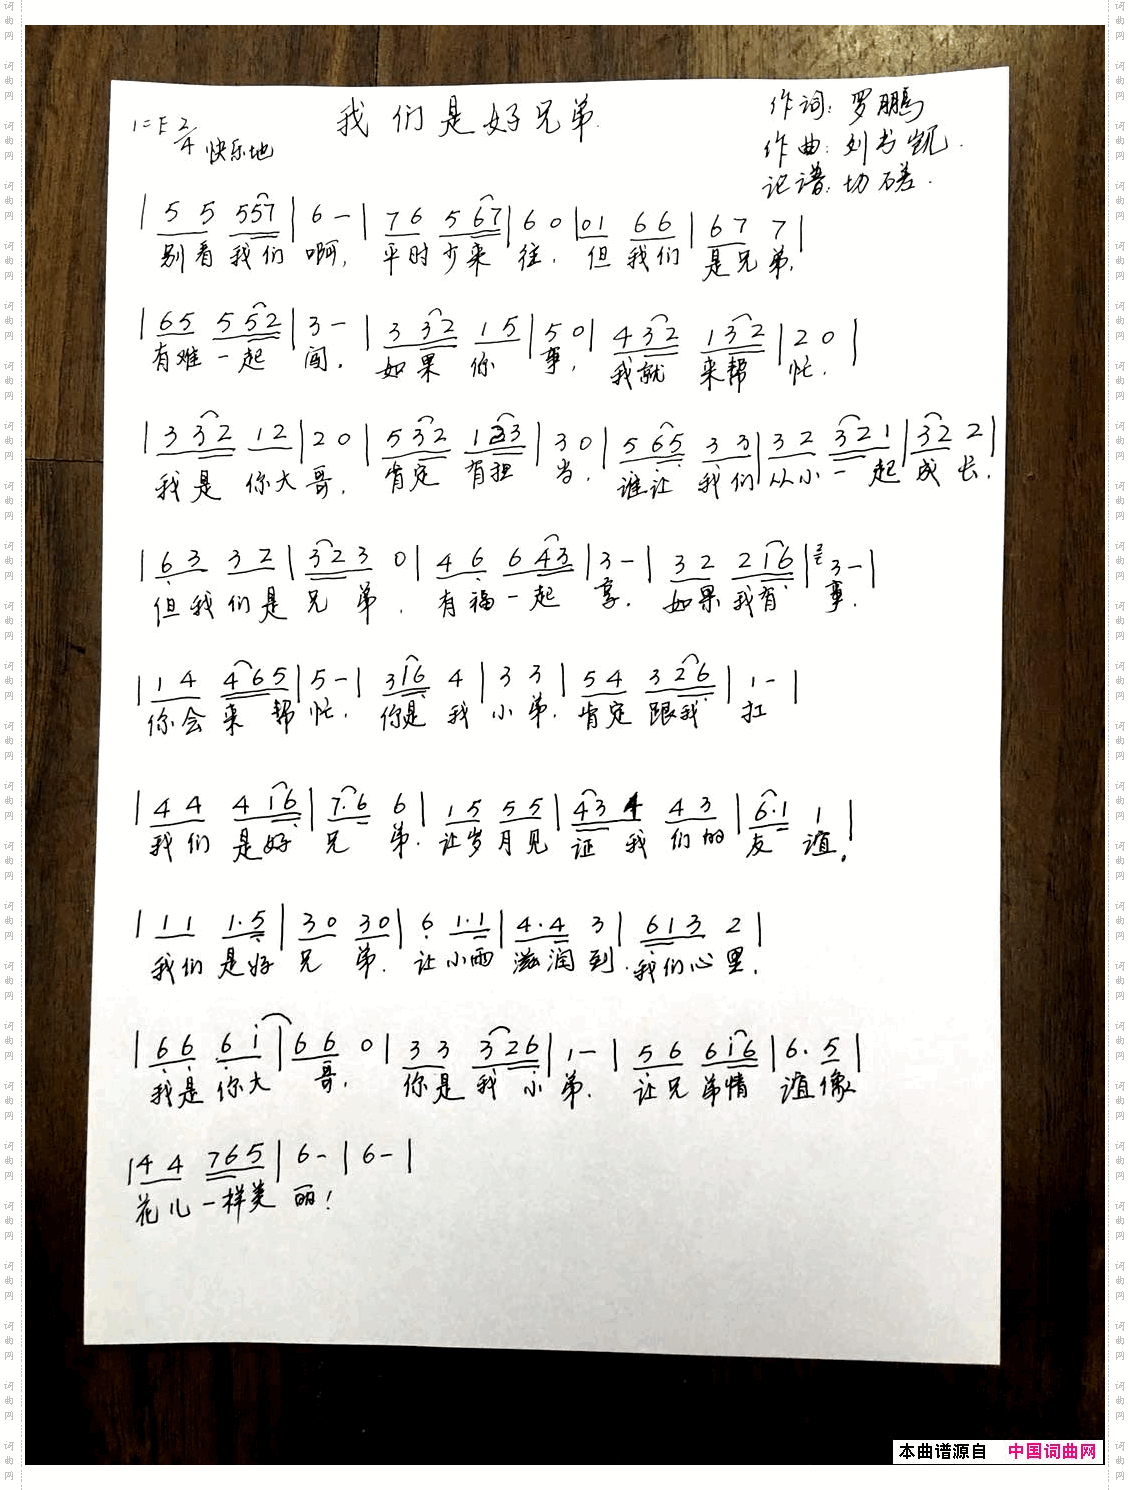 我们是好兄弟.
作词: 罗鹏
1=F 2/4 快乐地
作曲: 刘书凯.
记谱: 切磋.
| 5 5 557 | 6 - | 7 6 5 67 | 6 0 | 01 66 | 67 7 |
别看我们 啊, 平时少来 往. 但 我们 是兄弟.
| 65 552 | 3 - | 3 32 15 | 5 0 | 432 132 | 2 0 |
有难一起 闯. 如果 你 事, 我就 来帮 忙.
| 3 32 12 | 2 0 | 532 123 | 3 0 | 5 65 33 | 32 321 | 32 2 |
我是 你大哥. 肯定 有担 当. 谁让 我们 从小一 起 成 长.
| 63 32 | 323 0 | 46 643 | 3 - | 32 216 | 2 3 - |
但我们是 兄 弟. 有福一起 享. 如果我有 事.
| 14 465 | 5 - | 316 4 | 3 3 | 54 326 | 1 - |
你会 来 帮忙. 你是 我 小 弟. 肯定 跟我 扛
| 44 416 | 7·6 6 | 15 55 | 43 4 43 | 6·1 1 |
我们 是好 兄 弟. 让岁月见 证 我 们的 友 谊.
| 11 1·5 | 30 30 | 6 1·1 | 4·4 3 | 613 2 |
我们 是好 兄 弟. 让小雨 滋润到. 我们心里.
| 66 61 | 66 0 | 33 326 | 1 - | 56 616 | 6· 5 |
我是 你大 哥. 你是 我 小 弟. 让兄 弟情 谊像
| 44 765 | 6 - | 6 - |
花儿一样美 丽!
本曲谱源自 中国词曲网